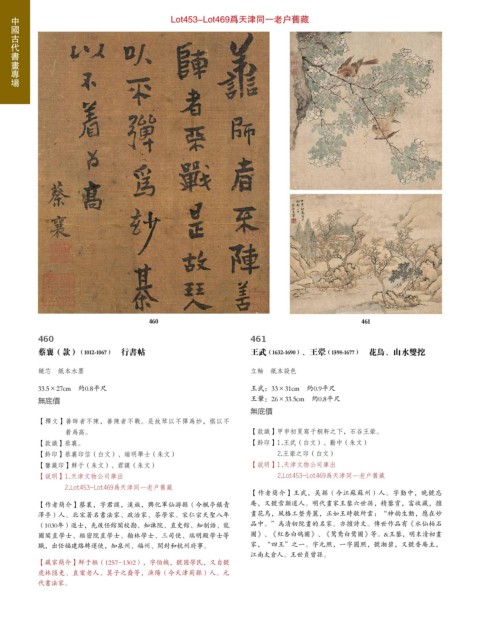 Lot453–Lot469爲天津同一老户舊藏
中國古代書畫專場
善師者不陳
陳者不戰是故琴
以不彈爲妙棋
以不着爲高
蔡襄
460
461
460
蔡襄（款）（1012-1067）　行書帖
鏡芯　紙本水墨
33.5×27cm　約0.8平尺
無底價
【釋文】善師者不陳，善陳者不戰。是故琴以不彈爲妙，棋以不
着爲高。
【款識】蔡襄。
【鈐印】蔡襄印信（白文）、端明學士（朱文）
【鑒藏印】鮮于（朱文）、君鑲（朱文）
【説明】1.天津文物公司庫出
2.Lot453-Lot469爲天津同一老户舊藏
【作者簡介】蔡襄，字君謨，漢族，興化軍仙游縣（今楓亭鎮青
澤亭）人。北宋著名書法家、政治家、茶學家。宋仁宗天聖八年
（1030年）進士，先後任館閣校勘、知諫院、直史館、知制誥、龍
圖閣直學士、樞密院直學士、翰林學士、三司使、端明殿學士等
職，出任福建路轉運使，知泉州、福州、開封和杭州府事。
【藏家簡介】鮮于樞（1257-1302），字伯機，號困學民，又自號
虎林隱吏、直案老人、箕子之裔等，漁陽（今天津蓟縣）人。元
代書法家。
461
王武（1632-1690）、王犖（1598-1677）　花鳥、山水雙挖
立軸　紙本設色
王武：33×31cm　約0.9平尺
王犖：26×33.5cm　約0.8平尺
無底價
【款識】甲申初夏寫于桐軒之下，石谷王犖。
【鈐印】1.王武（白文）、勤中（朱文）
2.王犖之印（白文）
【説明】1.天津文物公司庫出
2.Lot453-Lot469爲天津同一老户舊藏
【作者簡介】王武，吴縣（今江蘇蘇州）人。字勤中，晚號忘
庵，又號雪顛道人。明代畫家王鏊六世孫，精鑒賞，富收藏，擅
畫花鳥，風格工整秀麗，正如王時敏所書：“神韵生動，應在妙
品中。”爲清初院畫的名家。亦擅詩文。傳世作品有《水仙柏石
圖》、《紅杏白鴿圖》、《鴛鴦白鷺圖》等。&王鑒，明末清初畫
家，“四王”之一。字元照，一字圓照，號湘碧，又號香庵主，
江南太倉人。王世貞曾孫。